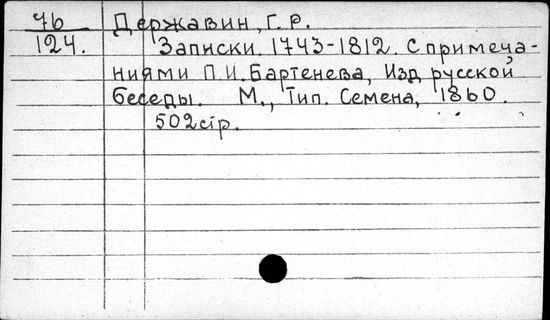 76
124.
Державин, Г. Р.
Записки. 1743-1812. С примеча-
ниями П. И. Бартенева, Изд. русской
беседы. М., Тип. Семена, 1860.
502 стр.